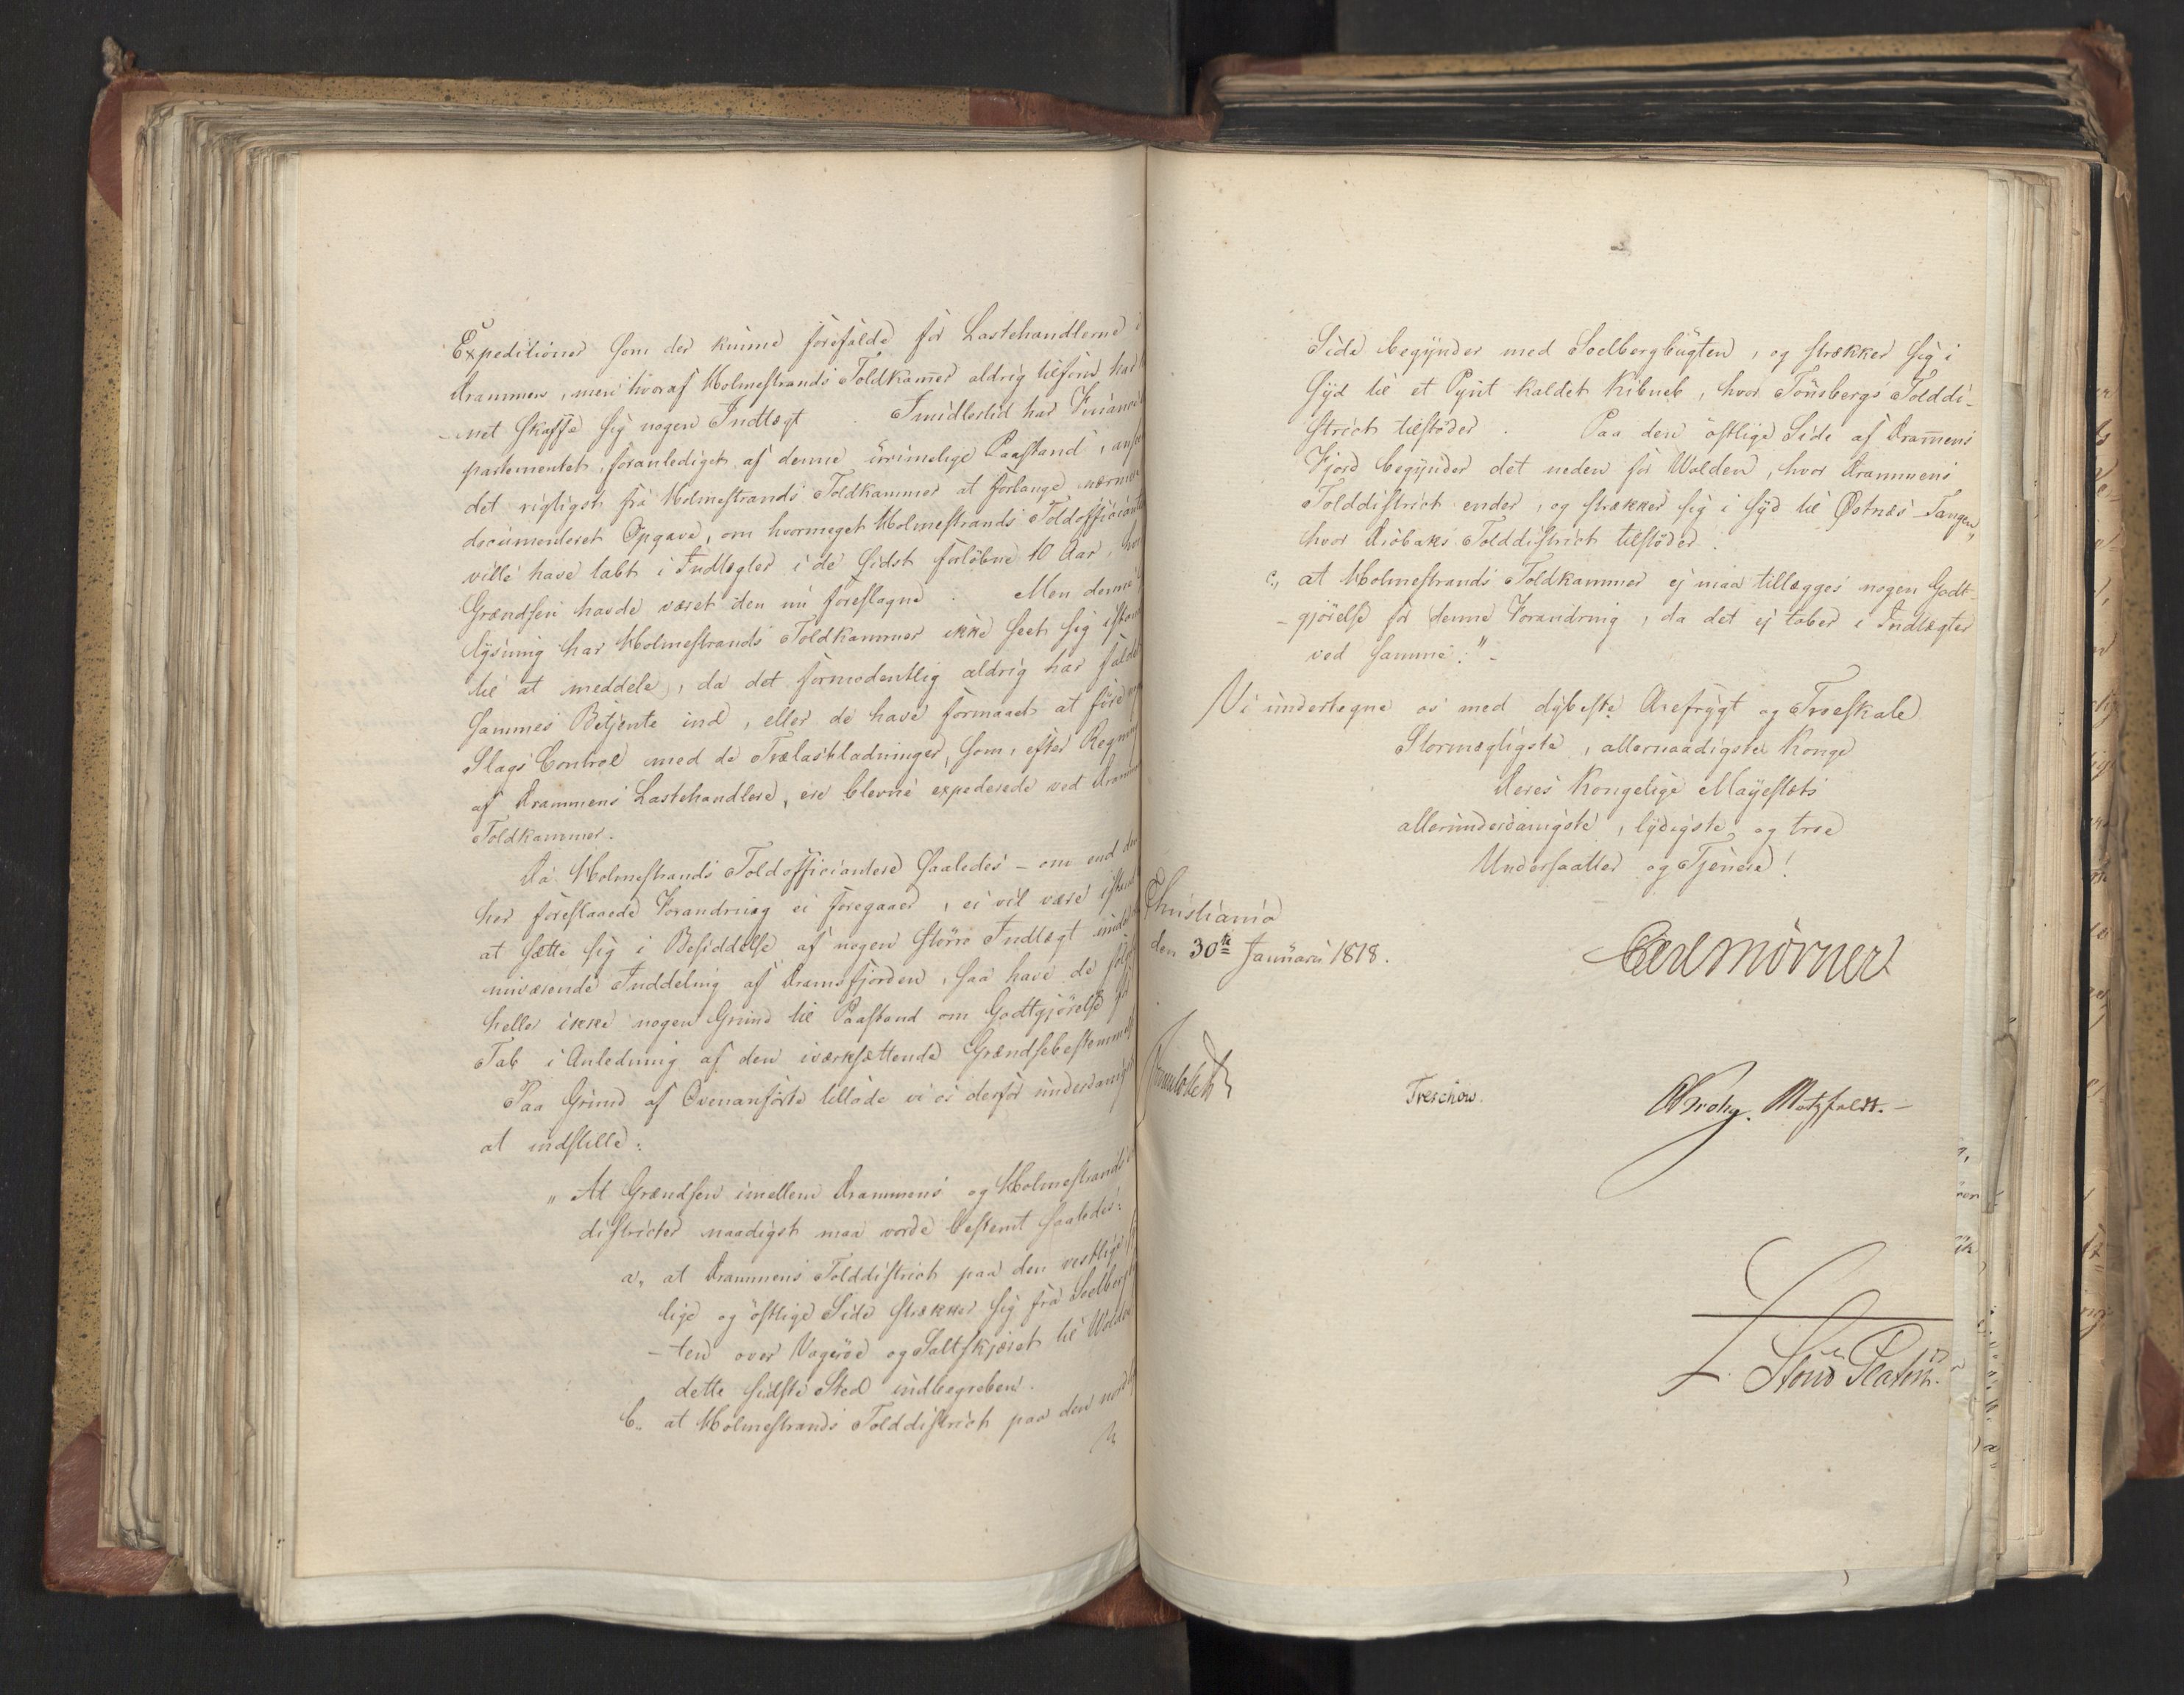 Expeditioner som der kunne forefalde for Lastehandlerne i
Drammen, men hvoraf Holmestrands Toldkamer aldrig tilforn har
-net skaffe sig nogen Indtægt. Imidlertid har Finance
partementet, foranlediget af denne urimelige Paastand, anse
det rigtigst fra Holmestrands Toldkammer at forlange nærme
documenteret Opgave, om hvormeget Holmestrands Toldofficiante
ville have tabt i Indtægter i de sidst forløbne 10 Aar, hvi
Grændsen havde været den nu foreslagne. Men denne
lysning har Holmestrands Toldkammer ikke seet sig istand
til at meddele, da det formodentlig aldrig har faldet
sammes Betjente ind, eller de have formaaet at føre no
Slags Control med de Trælastladninger, som, efter Regnin
af Drammens Lastehandlere, ere blevne expederede ved Dramm
Toldkammer.
Da Holmestrands Toldofficiantere saaledes - om end den
her foreslaaede Forandring ei foregaaer, ei vil være istand
at sætte sig i Besiddelse af nogen større Indtægt under
nuværende Inddeling af Dramsfjorden, saa have de følg
heller ikke nogen Grund til Paastand om Godtgjørelse for
Tab i Anledning af den iværksættende Grændsebestemmelse
Paa Grund af Ovenanførte tillade vi os derfor underdanigst
at indstille:
"At Grændsen imellem Drammens og Holmestrands
districter naadigst maa vorde bestemt saaledes:
a, at Drammens Tolddistrict paa den vestlige
lige og østlige Side strækker sig fra Soelbergb
-ten over Vagerøe og Saltskjæret til Wolden
dette sidste Sted indbegreben.
b, at Holmestrands Tolddistrict paa den nord
Side begynder med Soelbergbugten, og strækker sig i
Syd til et Pynt kaldet Kibneb, hvor Tønsbergs Tolddi-
strict tilstøder. Paa den østlige Side af Dramens
Fjord begynder det neden for Wolden, hvor Drammens
Tolddistrict ender, og strækker sig i Syd til Østnæs-Tangen,
hvor Drøbaks Tolddistrict tilstøder.
c, at Holmestrands Toldkammer ej maa tillægges nogen Godt-
-gjørelse for denne Forandring, da det ej taber i Indtægter
ved samme:"-
Vi undertegne os med dybeste Ærefrygt og Troeskab
Stormægtigste, allernaadigste Konge
Deres Kongelige Mayestæts
allerunderdanigste, lydigste og troe
Undersaatter og Tjenere!
Christiania
den 30te Januari 1818.
Carl Mörner
Treschow.
Krohg. Motzfeldt.-